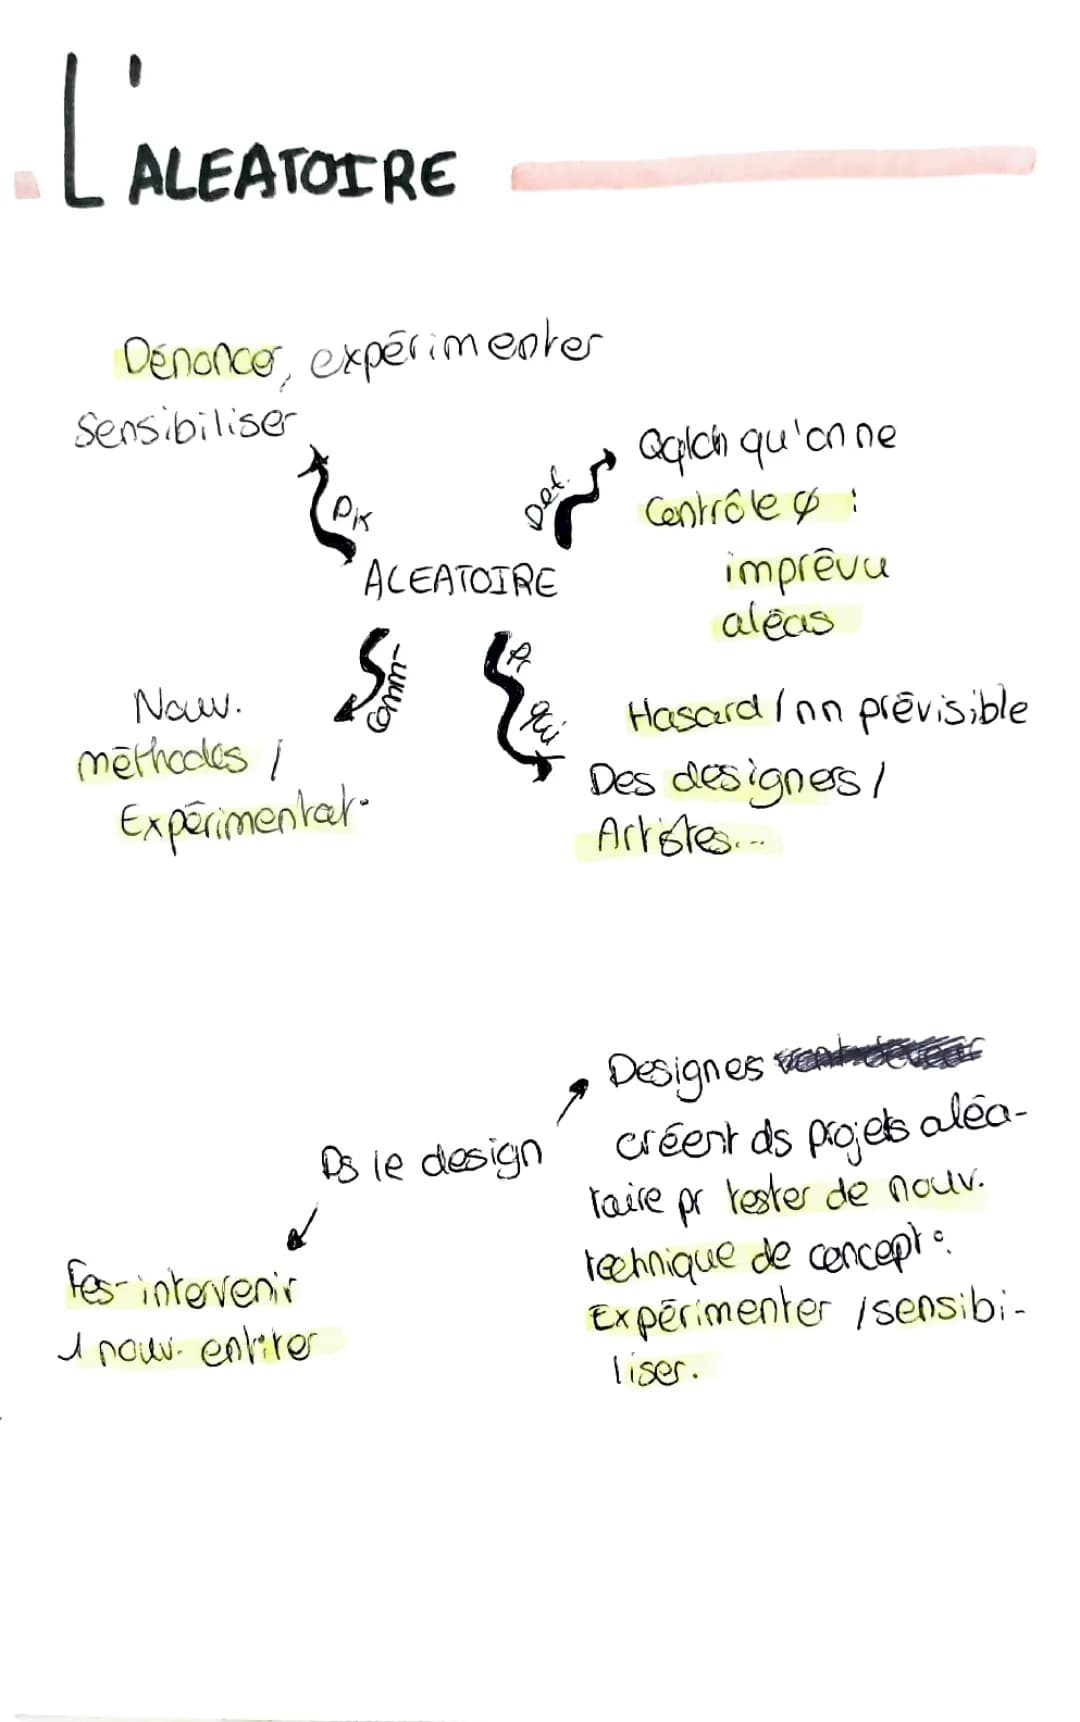 L'ALEATOIRE
Dénoncer, expérimenter
sensibiliser
Qqlch qu'on ne
Contrôle ϕ :
imprévu
aléas
Det.
PK
ALEATOIRE
Comm-
Pr
qui
Nouv.
méthodes /
Expérimentat°
Hasard / nn prévisible
Des designers /
Artistes...
Ds le design
Designes
créent ds projets aléa-
taire pr tester de nouv.
technique de concept° :
Expérimenter / sensibi-
liser.
Fes- intervenir
1 nouv. entiter